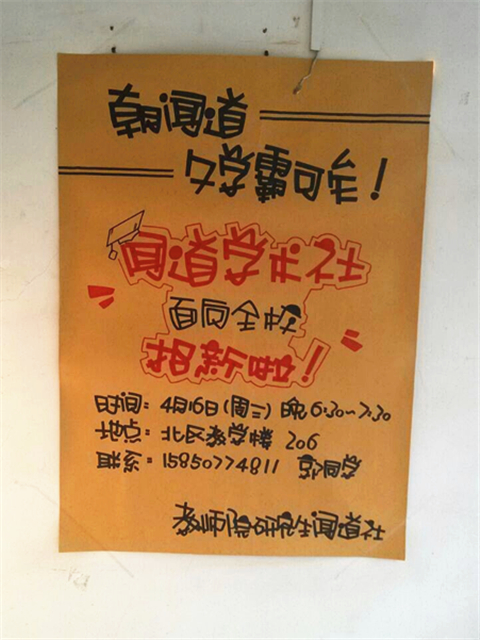 朝闻道
夕学霸可能！
闻道学术社
面向全校
招新啦！
时间：4月16日(周二) 晚6:30~7:30
地点：北区教学楼 206
联络：15850774811 郭同学
教师院研究生闻道社